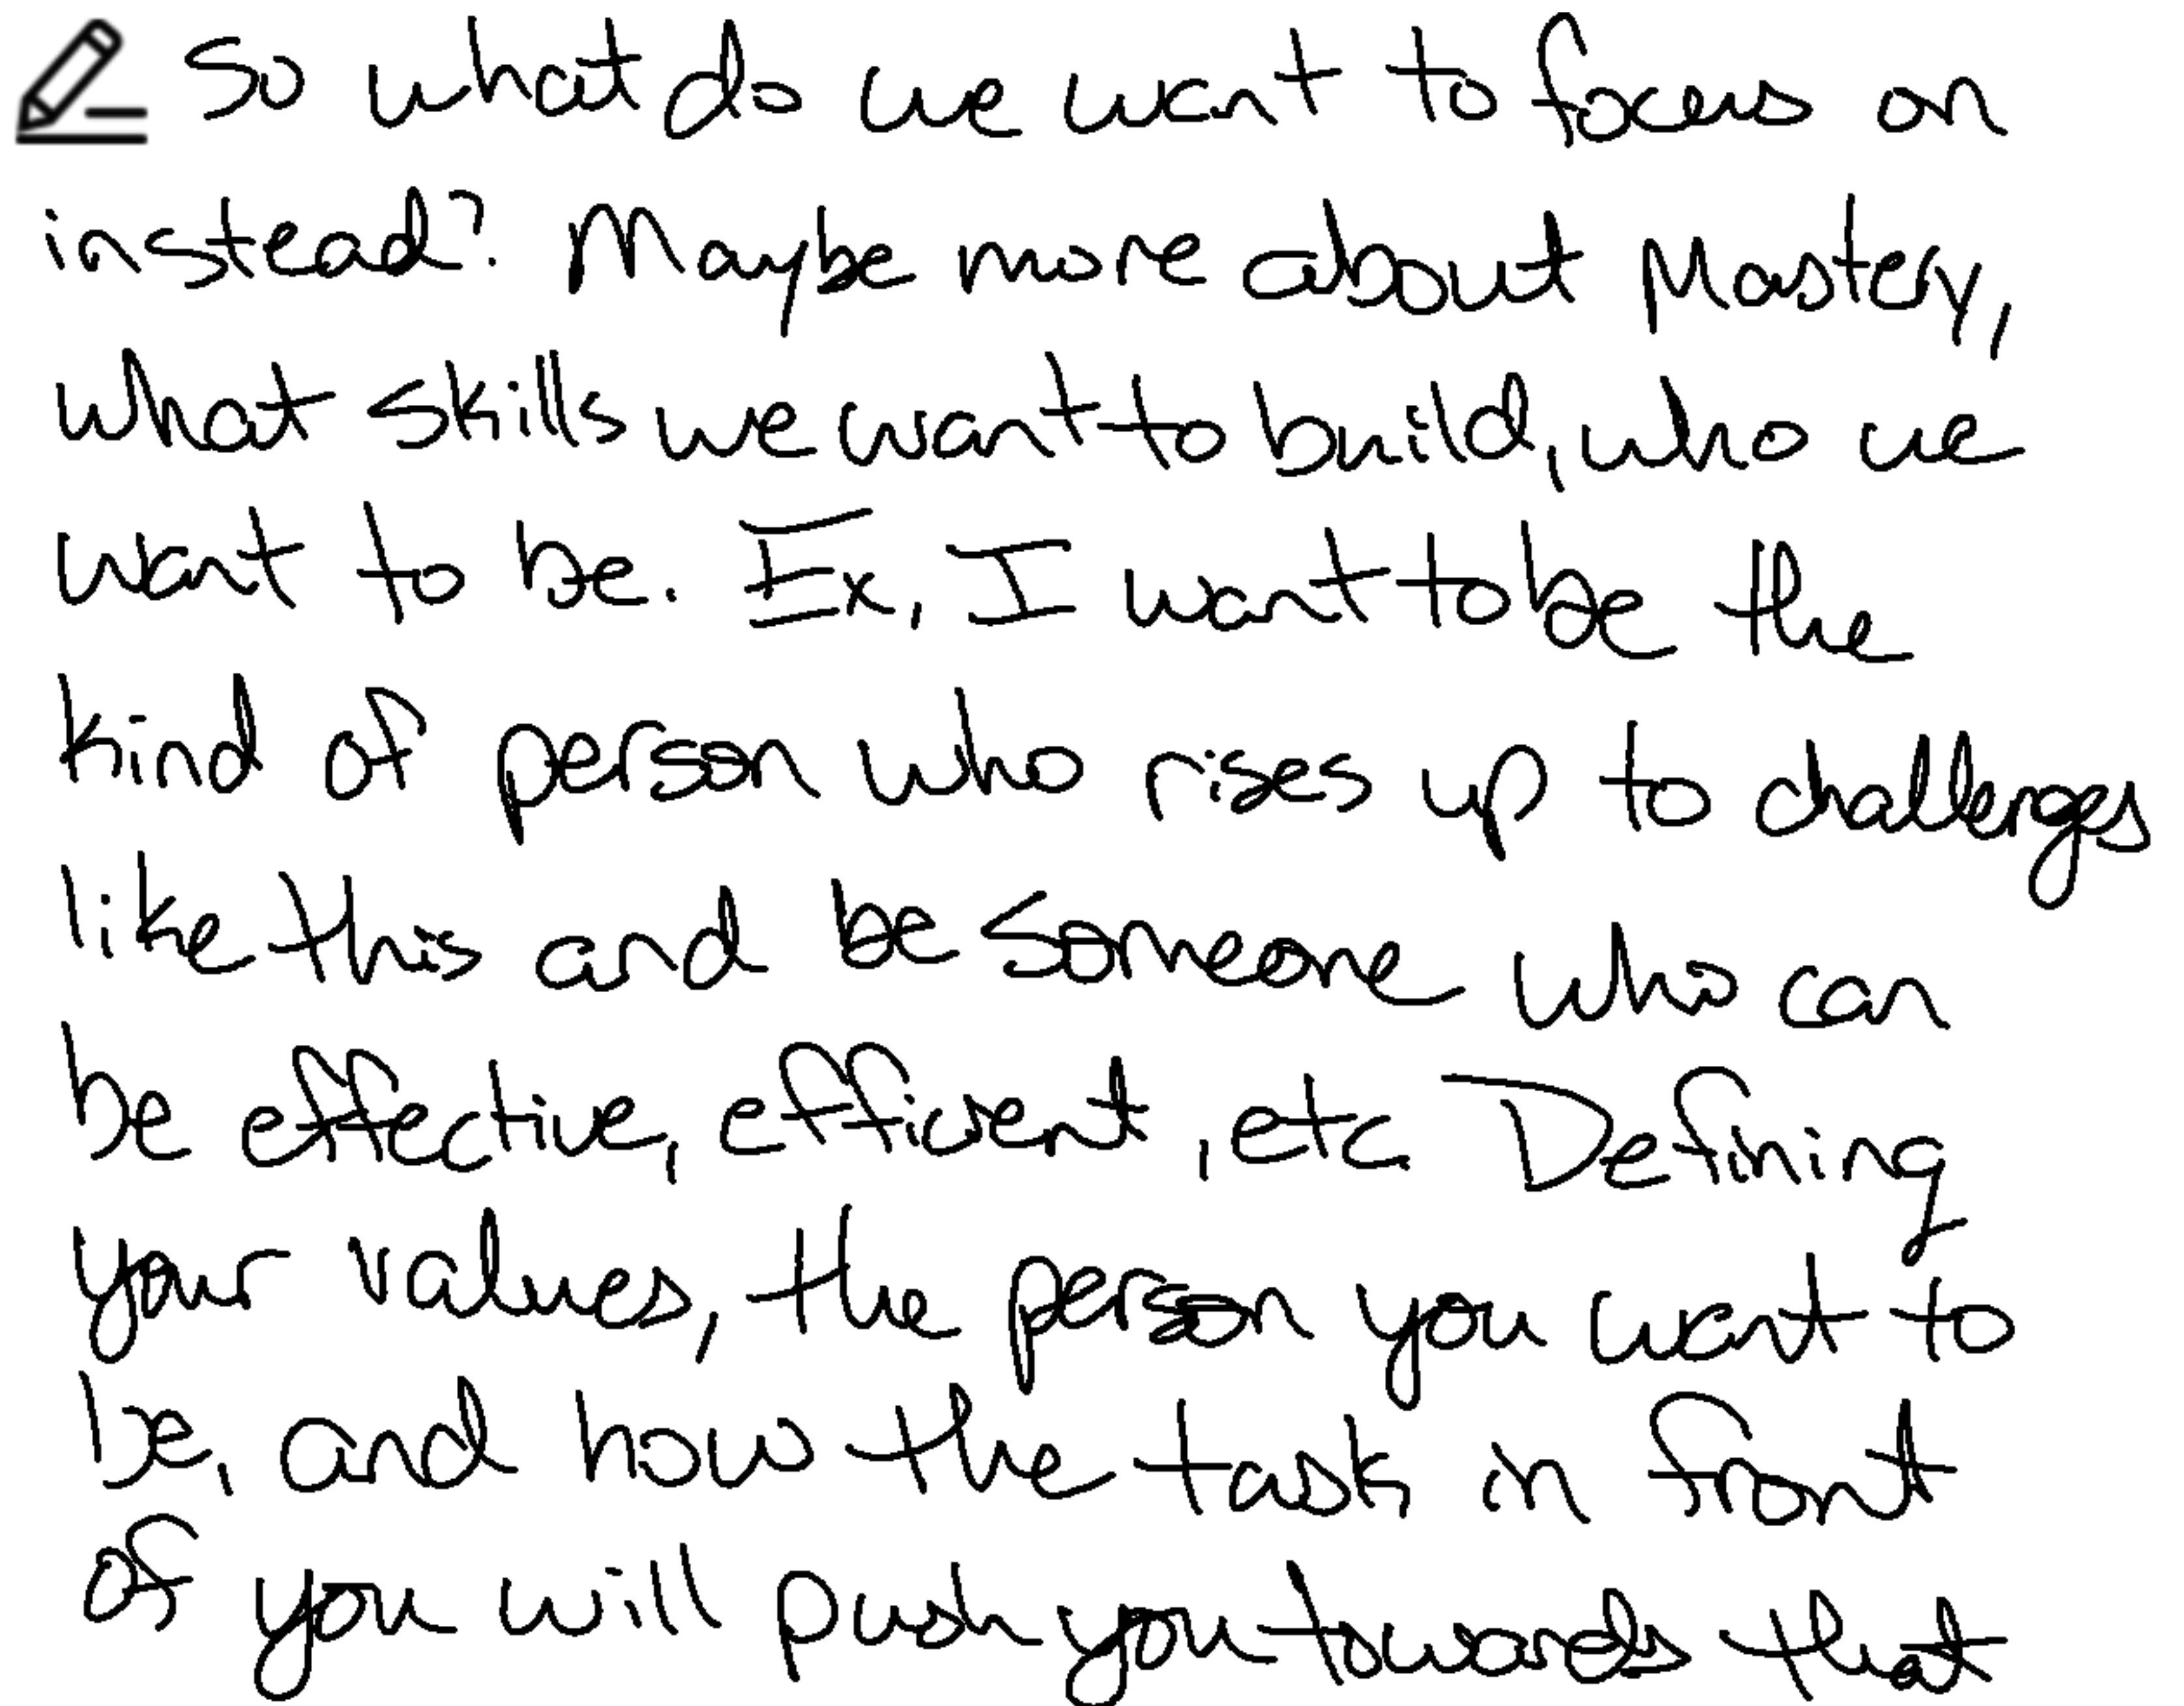 So what do we want to focus on
instead? Maybe more about Mastery,
what skills we want to build, who we
want to be. Ex, I want to be the
kind of person who rises up to challenges
like this and be someone who can
be effective, efficient, etc. Defining
your values, the person you want to
be, and how the task in front
of you will push you towards that